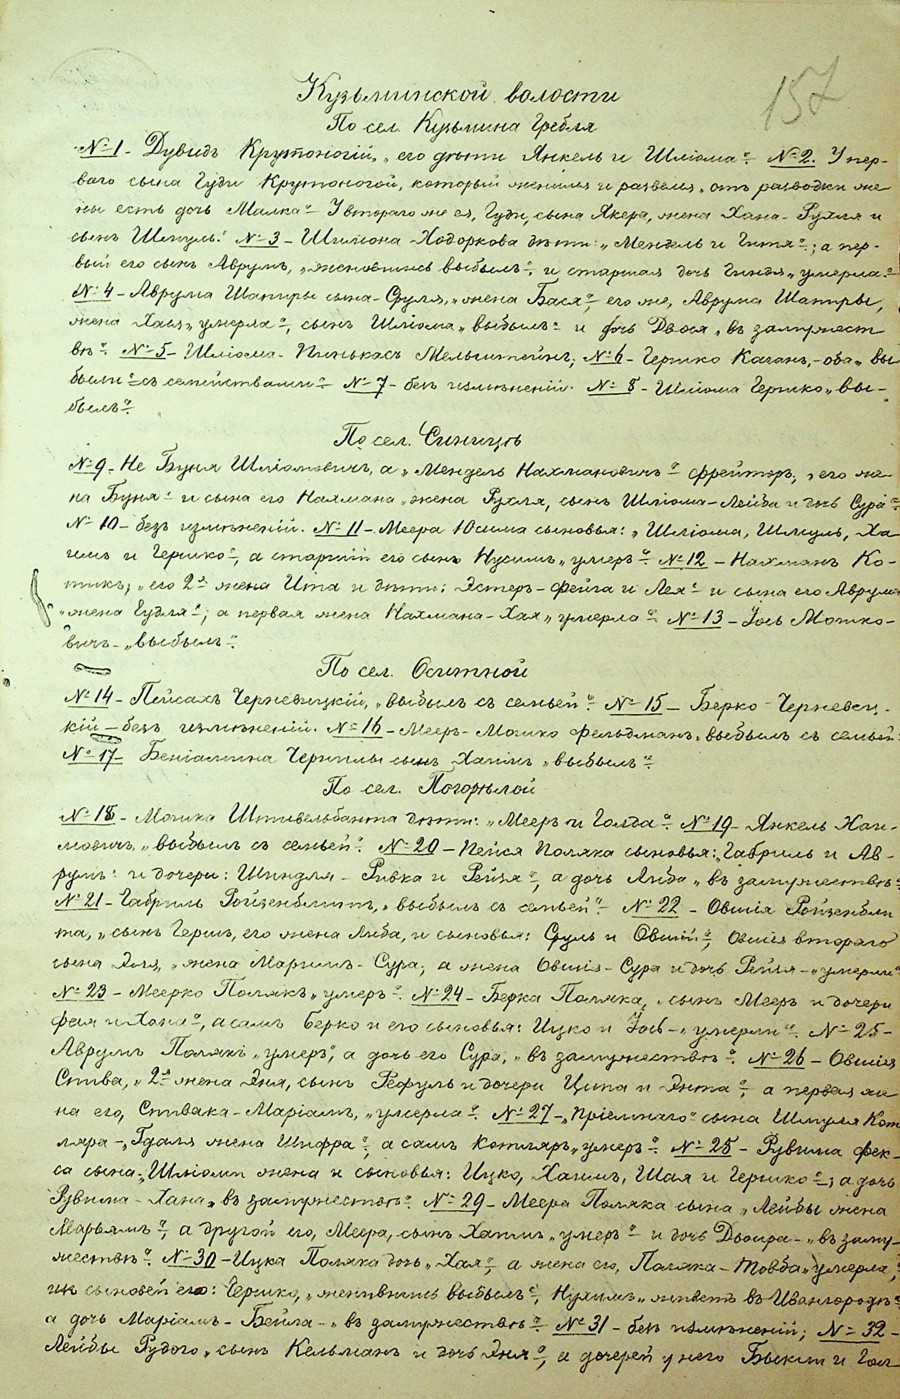 157
Кузьминской волости
По сел. Кузьмина Гребля
№ 1 - Дувидъ Крутоногій, „его дѣти Янкель и Шліома“. № 2. У пер-
ваго сына Гуди Крутоногой, который женился и развелся, отъ разводки же-
ны есть дочь Малка“ У втораго же ея, Гуди, сына Якера, жена Хана-Рухля и
сынъ Шмуль.“ № 3 - Шиміона Ходоркова дѣти: „Мендель и Гитя“; а пер-
вый его сынъ Аврумъ, „женившись выбылъ“, и старшая дочь Гиндя „умерла“.
№ 4 - Аврума Шапиры сына - Сруля, „жена Бася“, его же, Аврума Шапиры,
жена Хая „умерла“, сынъ Шліома „выбылъ“ и дочь Двося „въ замужест
вѣ“. № 5 - Шліома-Пинькасъ Мельштейнъ, № 6 - Гершко Каганъ, - оба „вы
были“ съ семействами“ № 7 - безъ измѣненій. № 8 - Шліома Гершко „вы-
былъ“.
По сел. Синицѣ
№ 9 - Не Буня Шліомовичъ, а „Мендель Нахмановичъ“ фрейтеръ, „его же-
на Буня“ и сына его Нахмана „жена Рухля, сынъ Шліома-Лейба и дочь Сура“
№ 10 - безъ измѣненій. № 11 - Меера Юсима сыновья: „Шліома, Шмуль, Ха-
имъ и Гершко“, а старшій его сынъ Нусимъ „умеръ“. № 12 - Нахманъ Ко-
тикъ, „его 2ая жена Ита и дѣти: Эстеръ-Фейга и Лея“ и сына его Аврума
„жена Гудля“; а первая жена Нахмана - Хая „умерла“ № 13 - Іось Мошко-
вичъ - „выбылъ“.
По сел. Оситной
№ 14 - Пейсахъ Черневицкій, „выбылъ съ семьей“. № 15 - Берко Черневиц-
кій - безъ измѣненій. № 16 - Мееръ-Мошко Фельдманъ „выбылъ съ семьей“
№ 17 - Беніамина Чернилы сынъ Хаимъ „выбылъ“.
По сел. Погорѣлой
№ 18 - Мошка Штивельбанта дѣти: „Мееръ и Голда“. № 19 - Янкель Хаи-
мовичъ, „выбылъ съ семьей“. № 20 - Пейся Поляка сыновья: „Габриль и Ав-
румъ“ и дочери: Шиндля-Ривка и Рейзя“, а дочь Либа „въ замужествѣ“
№ 21 - Габриль Ройзенблитъ, „выбылъ съ семьей“. № 22 - Овшія Ройзенбли
та, „сынъ Гершъ, его жена Либа, и сыновья: Сруль и Овшій“, Овшія втораго
сына Эля, „жена Маримъ-Сура, а жена Овшія - Сура и дочь Рейзя - „умерли“
№ 23 - Меерко Полякъ „умеръ“. № 24 - Берка Поляка, „сынъ Мееръ и дочери
Фейя и Хана“, а самъ Берко и его сыновья: Ицко и Іось - „умерли“. № 25 -
Аврумъ Полякъ „умеръ“, а дочь его Сура, „въ замужествѣ“. № 26 - Овшія
Спива, „2ая жена Эня, сынъ Рефуль и дочери Ципа и Энта“, а первая же
на его, Спивака - Маріамъ, „умерла“. № 27 - „Пріемнаго“ сына Шмуля Кот
ляра - „Гдаля жена Шифра“, а самъ Котляръ „умеръ“. № 28 - Рувина Фек-
са сына „Шліоми жена и сыновья: Ицко, Хаимъ, Шая и Гершко“; а дочь
Рувина - Хана „въ замужествѣ“. № 29 - Меера Поляка сына „Лейбы жена
Марьямъ“, а другой его, Меера, сынъ Хаимъ „умеръ“ и дочь Двойра - „въ заму-
жествѣ“. № 30 - Ицка Поляка дочь „Хая“, а жена его, Поляка - Товба „умерла,
изъ сыновей его: Гершко, „женившись выбылъ“, Нухимъ „живетъ въ Ивангородѣ“
а дочь Маріамъ-Бейла - „въ замужествѣ“. № 31 - безъ измѣненій; № 32 -
Лейбы Рудого „сынъ Кельманъ и дочь Эня“, а дочерей у него и Гол